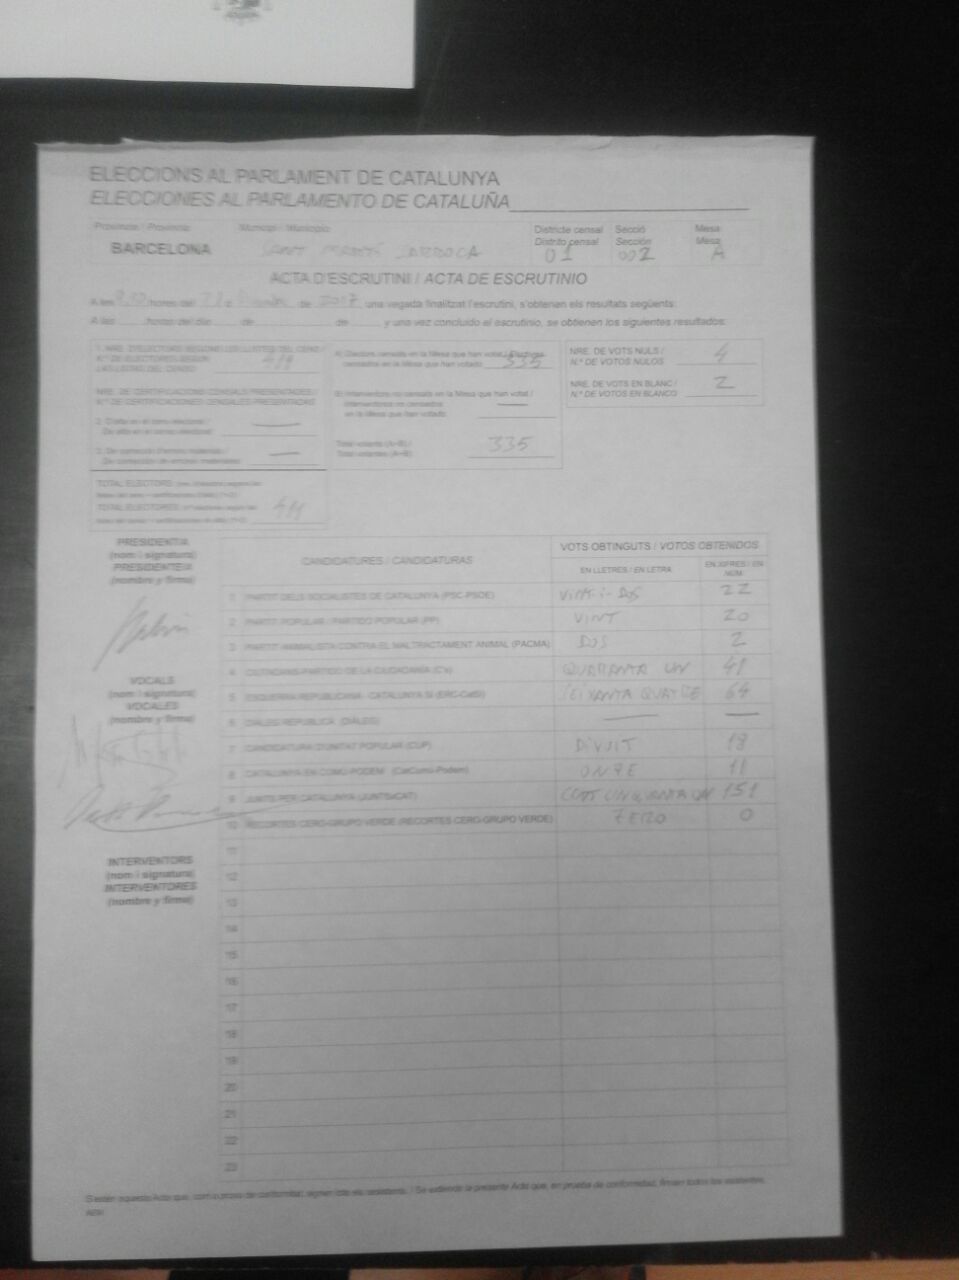 ELECCIONS AL PARLAMENT DE CATALUNYA
ELECCIONES AL PARLAMENTO DE CATALUÑA
Província / Provincia Municipi / Municipio Districte censal Secció Mesa
Distrito censal Sección Mesa
BARCELONA SANT MARTÍ SARROCA 01 002 A
ACTA D'ESCRUTINI / ACTA DE ESCRUTINIO
A les hores del 21 de de 2017 una vegada finalitzat l'escrutini, s'obtenen els resultats següents:
A las horas del día de de y una vez concluido el escrutinio, se obtienen los siguientes resultados:
1. NRE. D'ELECTORS SEGONS LES LLISTES DEL CENS /
N.º DE ELECTORES SEGÚN
LAS LISTAS DEL CENSO
NRE. DE CERTIFICACIONS CENSALS PRESENTADES /
N.º DE CERTIFICACIONES CENSALES PRESENTADAS
2. D'alta en el cens electoral /
De alta en el censo electoral —
3. De correcció d'errors materials /
De corrección de errores materiales —
TOTAL ELECTORS
TOTAL ELECTORES
A) Electors censats en la Mesa que han votat / Electores
censados en la Mesa que han votado 335
B) Interventors no censats en la Mesa que han votat /
Interventores no censados
en la Mesa que han votado —
Total votants (A+B) /
Total votantes (A+B) 335
NRE. DE VOTS NULS /
N.º DE VOTOS NULOS 4
NRE. DE VOTS EN BLANC /
N.º DE VOTOS EN BLANCO 2
PRESIDENT/A
(nom i signatura)
PRESIDENTE/A
(nombre y firma)
VOCALS
(nom i signatura)
VOCALES
(nombre y firma)
INTERVENTORS
(nom i signatura)
INTERVENTORES
(nombre y firma)
CANDIDATURES / CANDIDATURAS VOTS OBTINGUTS / VOTOS OBTENIDOS
EN LLETRES / EN LETRA EN XIFRES / EN NÚM.
1 PARTIT DELS SOCIALISTES DE CATALUNYA (PSC-PSOE) VINT-I-DOS 22
2 PARTIT POPULAR / PARTIDO POPULAR (PP) VINT 20
3 PARTIT ANIMALISTA CONTRA EL MALTRACTAMENT ANIMAL (PACMA) DOS 2
4 CIUTADANS-PARTIDO DE LA CIUDADANÍA (C's) QUARANTA UN 41
5 ESQUERRA REPUBLICANA - CATALUNYA SÍ (ERC-CatSí) SEIXANTA QUATRE 64
6 DIÀLEG REPÚBLICA (DIÀLEG) — —
7 CANDIDATURA D'UNITAT POPULAR (CUP) DIVUIT 18
8 CATALUNYA EN COMÚ-PODEM (CatComú-Podem) ONZE 11
9 JUNTS PER CATALUNYA (JUNTSxCAT) CENT CINQUANTA UN 151
10 RECORTES CERO-GRUPO VERDE (RECORTES CERO-GRUPO VERDE) ZERO 0
11
12
13
14
15
16
17
18
19
20
21
22
23
S'estén aquesta Acta que, com a prova de conformitat, signen tots els assistents. / Se extiende la presente Acta que, en prueba de conformidad, firman todos los asistentes.